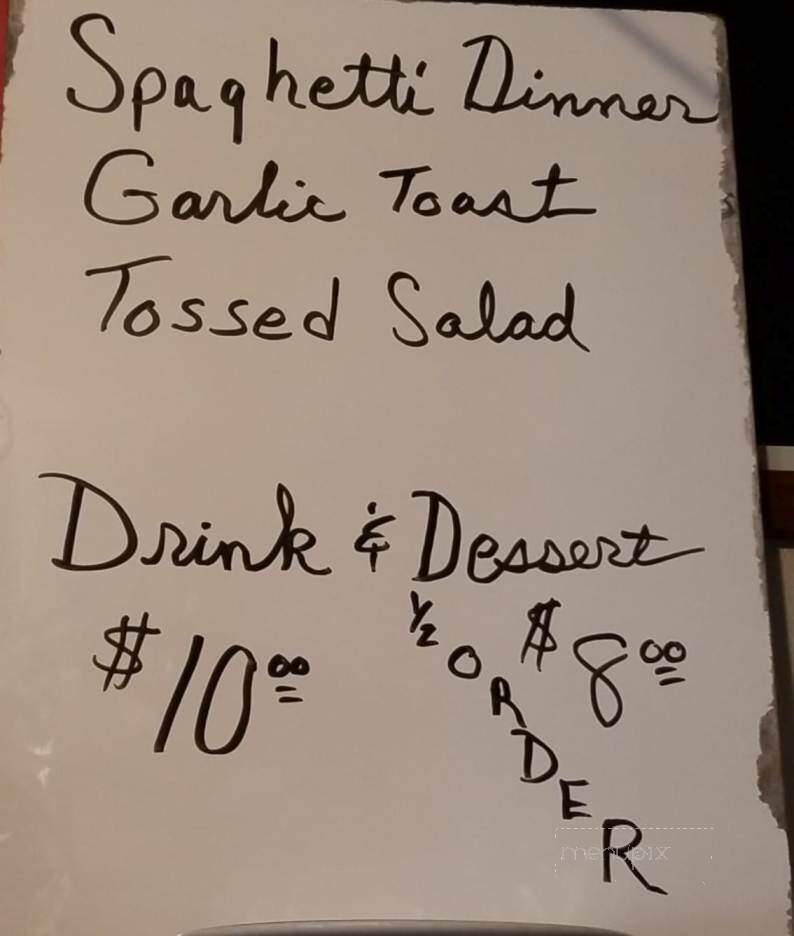 Spaghetti Dinner
Garlic Toast
Tossed Salad
Drink & Dessert
$10.00
1/2 ORDER $8.00
menupix